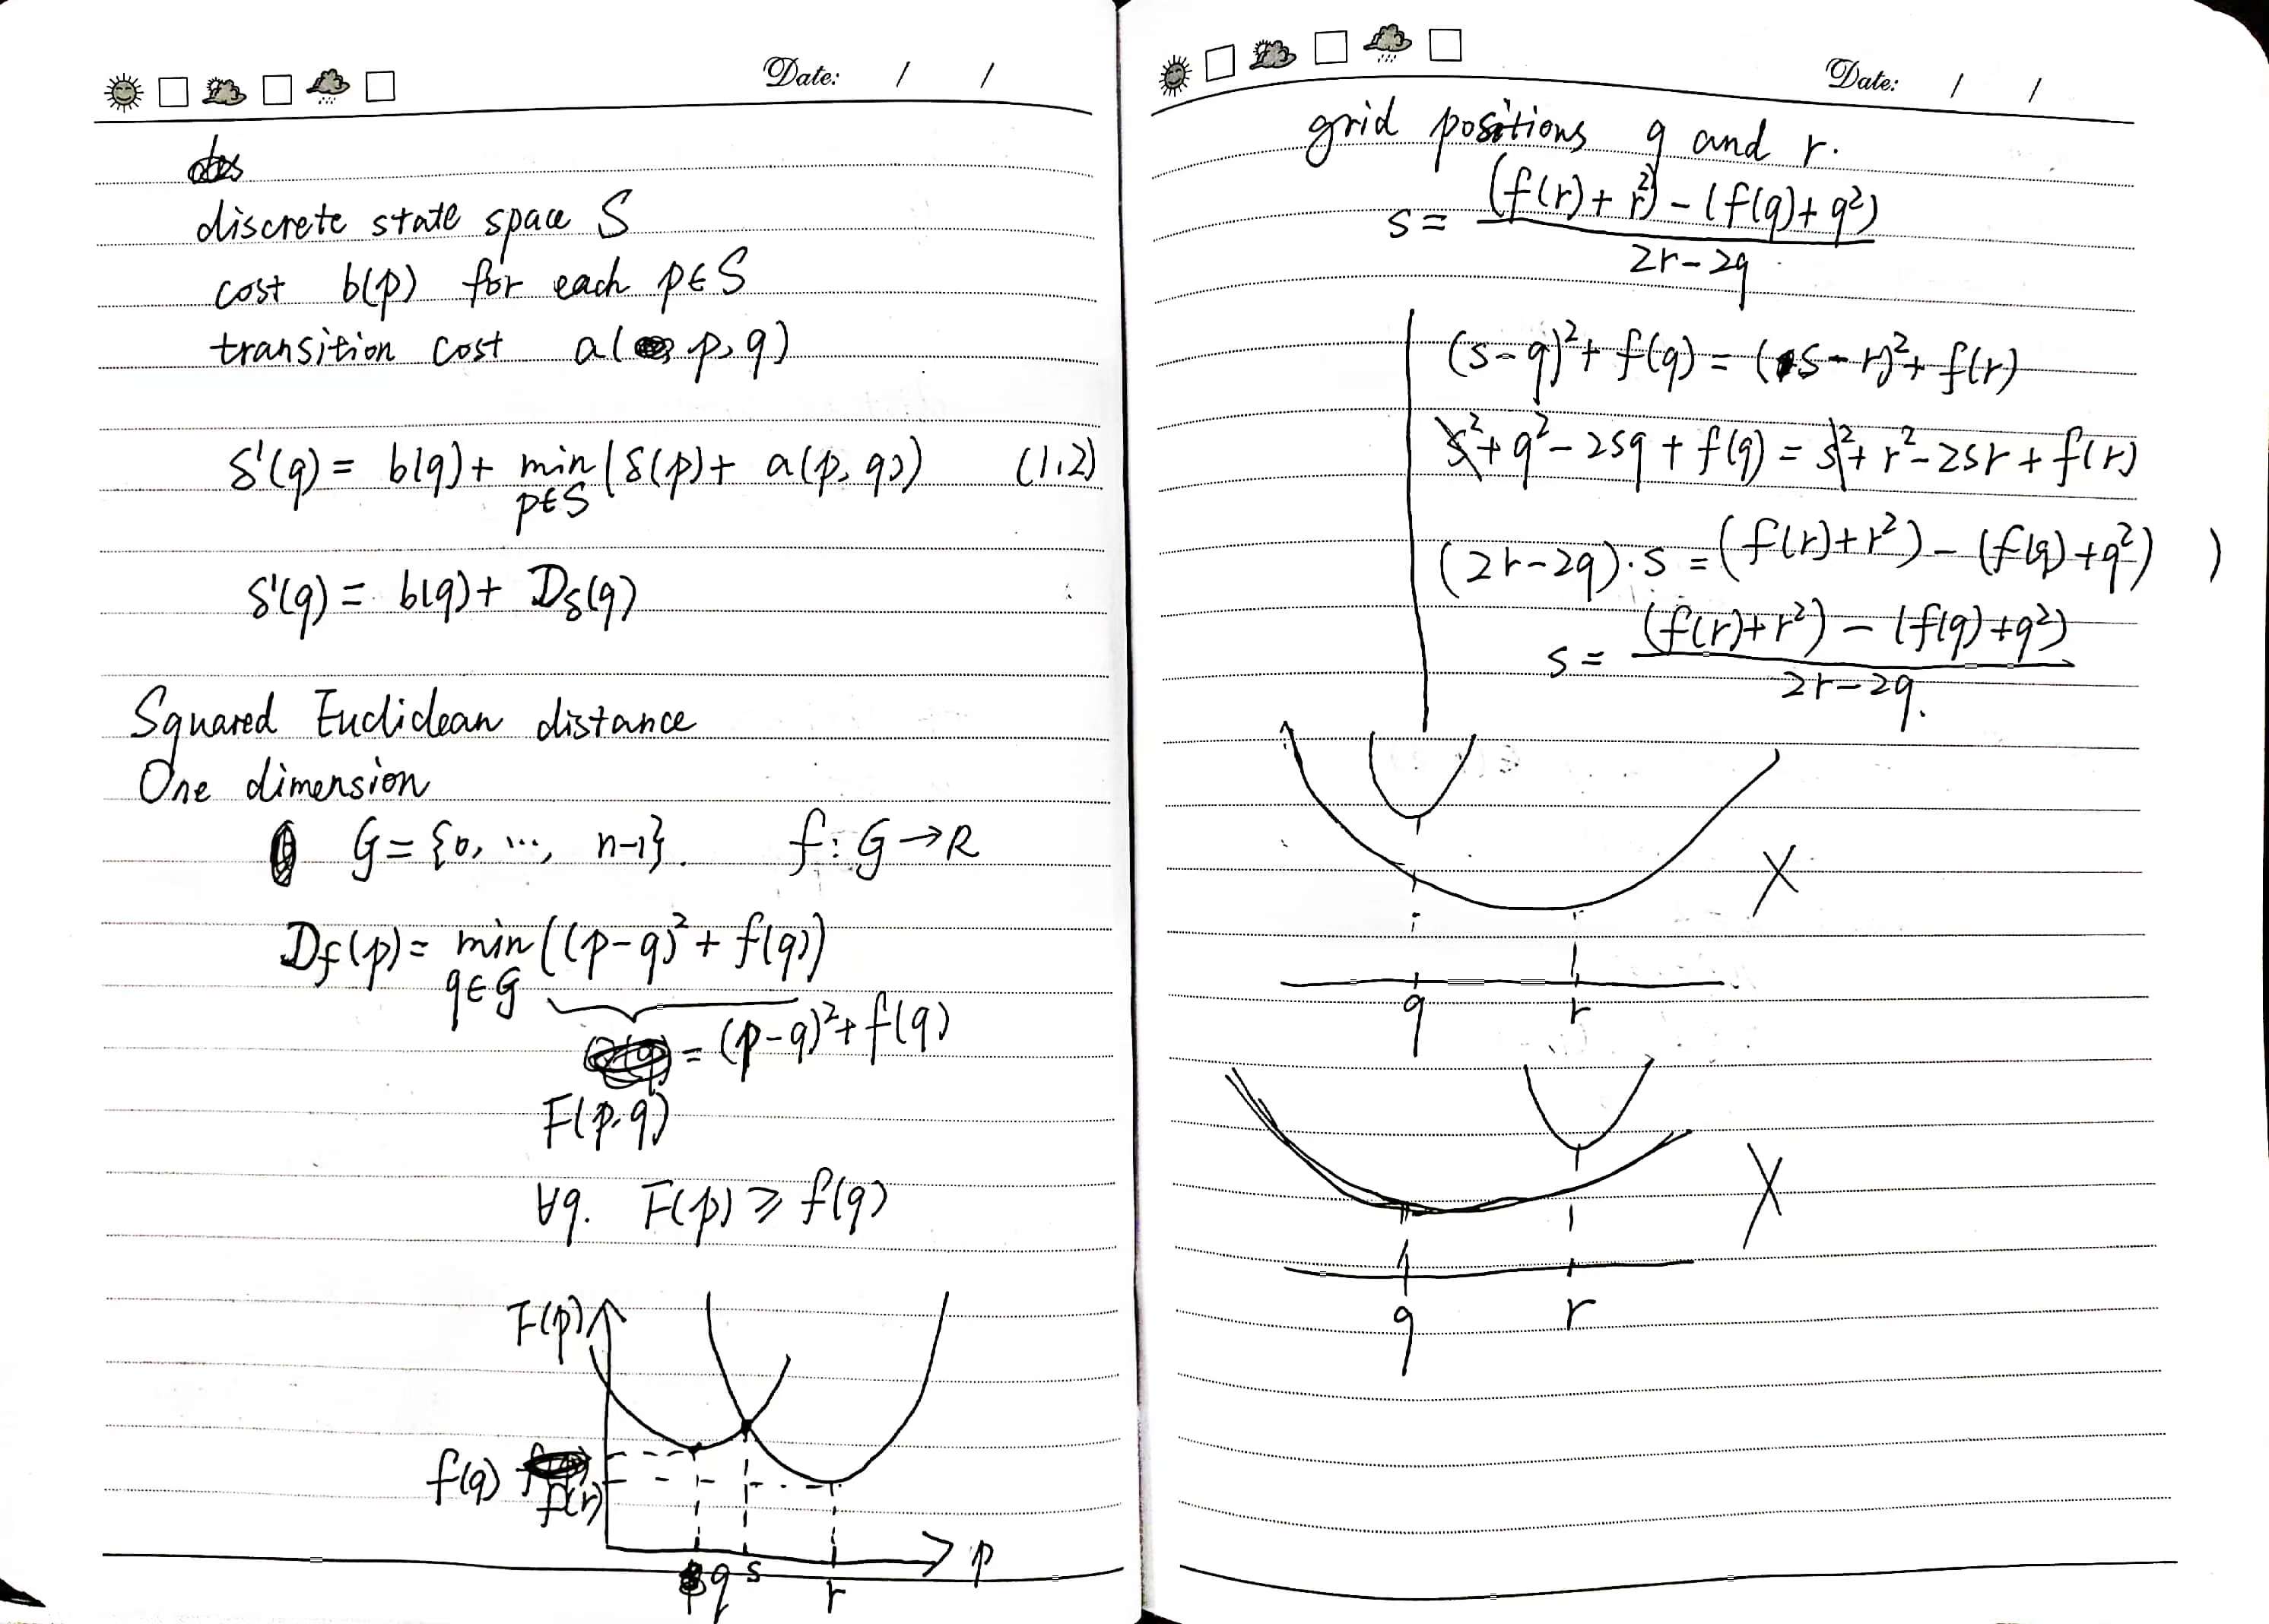 Date: / /
discrete state space S
cost b(p) for each p∈S
transition cost a(p, q)
δ'(q) = b(q) + min (δ(p) + a(p, q)) (1.2)
p∈S
δ'(q) = b(q) + D_δ(q)
Squared Euclidean distance
One dimension
G = {0, ..., n-1}. f: G → R
D_f(p) = min ((p-q)² + f(q))
q∈G
= (p-q)² + f(q)
F(p.q)
∀q. F(p) ≥ f(q)
F(p)
f(q)
f(r)
q s r p
Date: / /
grid positions q and r.
s = ((f(r) + r²) - (f(q) + q²)) / (2r-2q)
(s-q)² + f(q) = (s-r)² + f(r)
s² + q² - 2sq + f(q) = s² + r² - 2sr + f(r)
(2r-2q)·s = (f(r)+r²) - (f(q)+q²) )
s = ((f(r)+r²) - (f(q)+q²)) / (2r-2q).
X
q r
X
q r